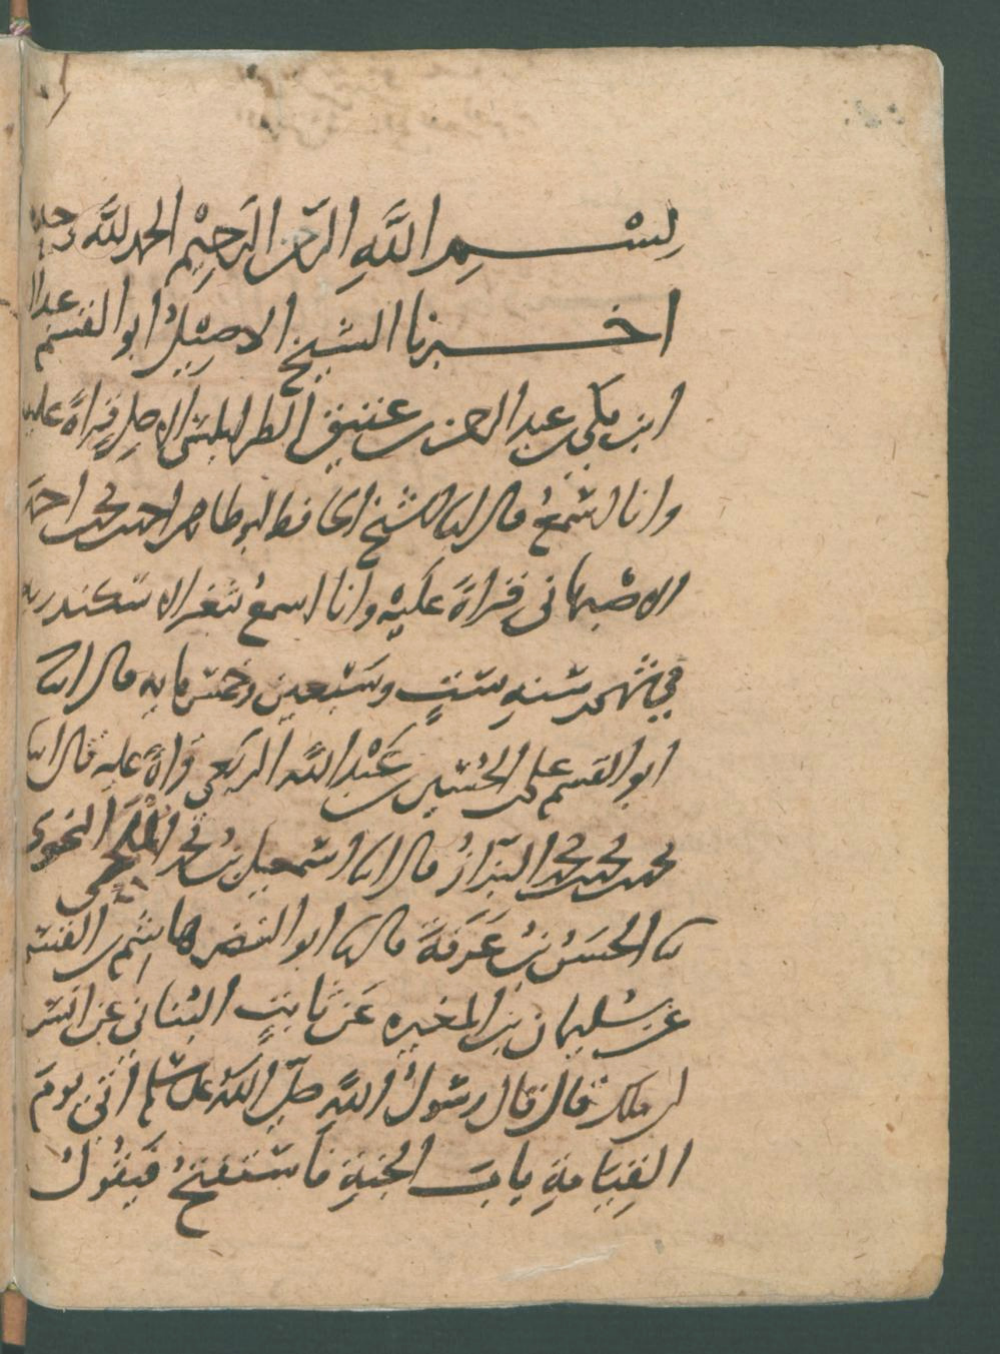 بسم الله الرحمن الرحيم الحمد لله وحده
اخبرنا الشيخ الاصيل ابو القسم عبد الر
ابن مكي عبد الرحمن بن عتيق الطرابلسي الاصل قراة عليه
وانا اسمع قال انبا الشيخ الحافظ ابو طاهر احمد بن محمد بن احمد
الاصبهاني قراة عليه وانا اسمع بثغر الاسكندرية
في شهور سنه ست وسبعين وخمس مايه قال انبا
ابو القسم علي بن الحسين بن عبد الله الربعي قراة عليه قال انبا
محمد بن محمد بن محمد البزاز قال انبا اسمعيل بن محمد النحوي
الملحمي
ثنا الحسن بن عرفة قال ثنا ابو النضر هاشم بن القسم
عن سليمان بن المغيره عن ثابت البناني عن انس
ابن ملك قال قال رسول الله صلى الله عليه وسلم اتي يوم
القيامة باب الجنة فاستفتح فيقول